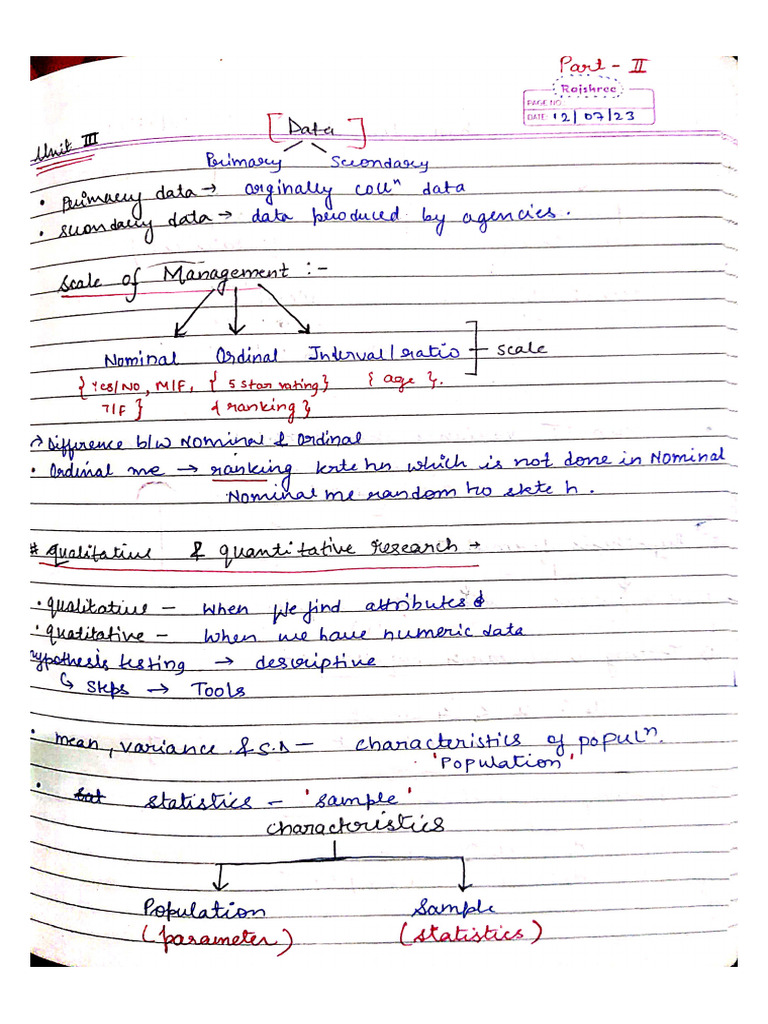 Part - II
Rajshree
PAGE NO.
DATE: 12/07/23
Unit III
[Data]
Primary Secondary
• Primary data → orginally collⁿ data
• Secondary data → data produced by agencies.
Scale of Management :-
Nominal Ordinal Interval/ratio scale
{Yes/No, M/F, { 5 star rating} { age }.
T/F } { ranking }
→ Difference b/w Nominal & Ordinal
• Ordinal me → ranking krte hn which is not done in Nominal
Nominal me random ho skte h.
# Qualitative & quantitative research →
• qualitative - when we find attributes &
• quatitative - when we have numeric data
hypothesis testing → descriptive
↳ steps → Tools
• mean, variance & S.D - characteristics of populⁿ.
'Population'
• statistics - 'sample'
characteristics
Population Sample
(parameter) (statistics)